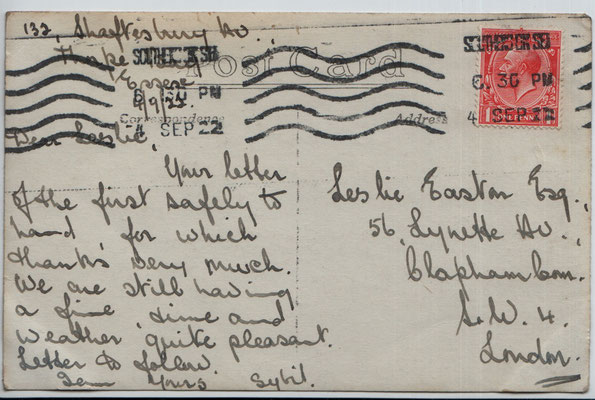 132, Shaftesbury Av.,
Thorpe Bay
Essex
Post Card
SOUTHEND ON SEA
6.30 PM
4 SEP 22
SOUTHEND ON SEA
6.30 PM
4 SEP 22
ONE PENNY
Correspondence
Address
Dear Leslie,
Your letter
of the first safely to
hand, for which
thanks very much.
We are still having
a fine time and
weather quite pleasant.
Letter to follow.
Yours Sybil.
Leslie Easton Esq.,
56, Lynette Av.,
Clapham Com.
S.W. 4.
London.